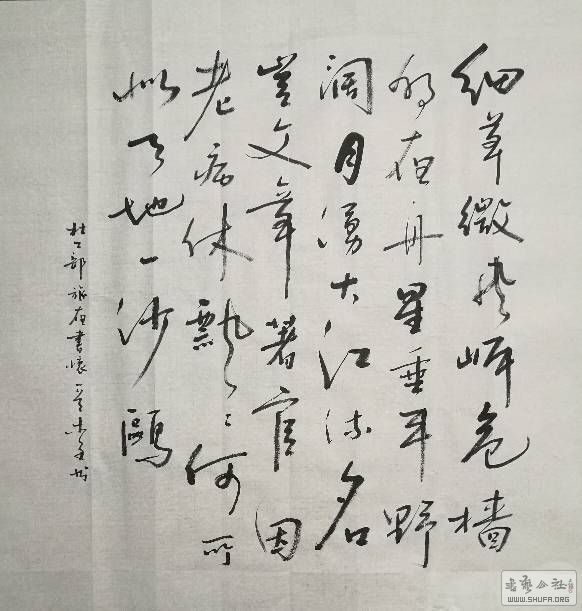 細草微風岸危檣
獨夜舟星垂平野
闊月湧大江流名
豈文章著官因
老病休飄飄何所
似天地一沙鷗
杜工部旅夜書懷一首
書藝公社
WWW.SHUFA.ORG